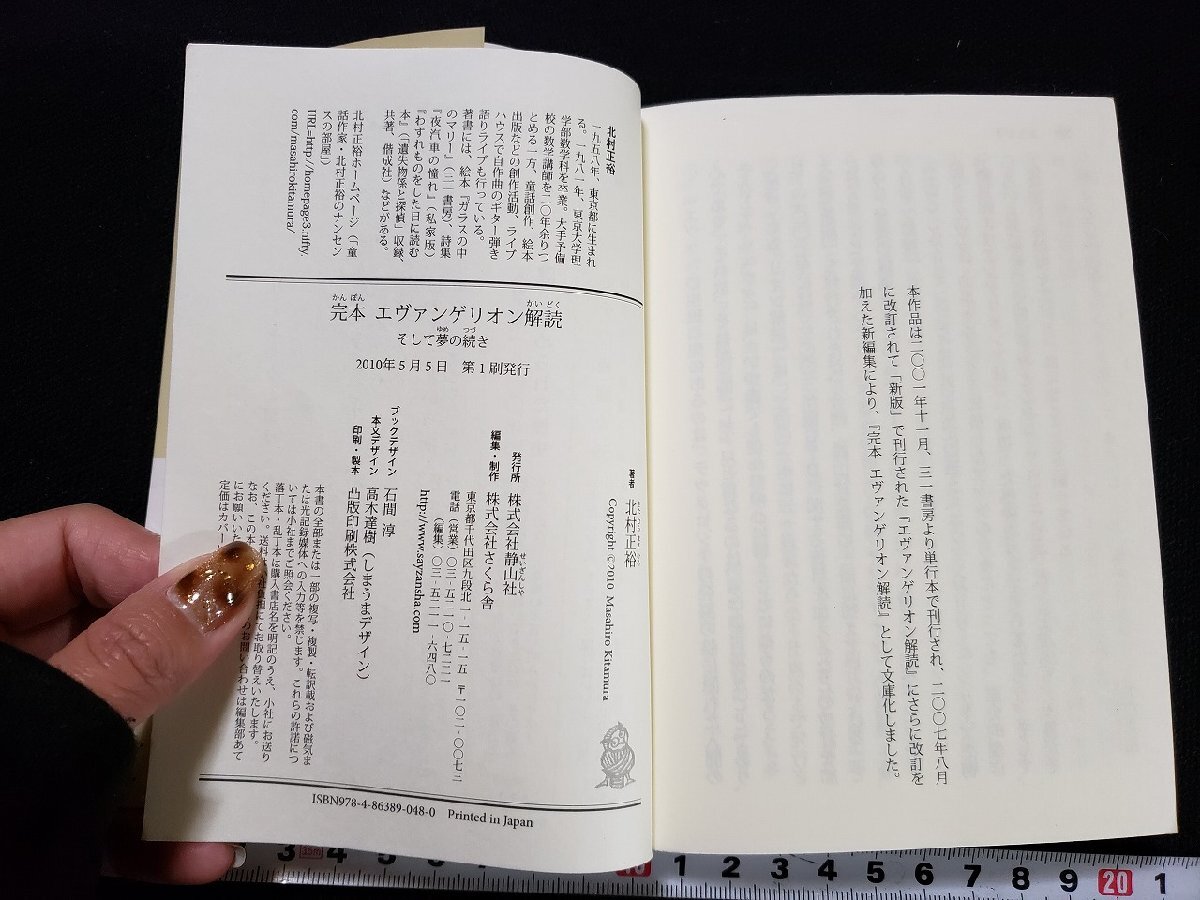 本作品は二〇〇一年十一月、三一書房より単行本で刊行され、二〇〇七年八月
に改訂されて「新版」で刊行された『エヴァンゲリオン解読』にさらに改訂を
加えた新編集により、『完本 エヴァンゲリオン解読』として文庫化しました。
北村正裕
一九五八年、東京都に生まれ
る。一九八一年、東京大学理
学部数学科を卒業。大手予備
校の数学講師を二〇年余りつ
とめる一方、童話創作、絵本
出版などの創作活動、ライブ
ハウスで自作曲のギター弾き
語りライブも行っている。
著書には、絵本『ガラスの中
のマリー』(三一書房)、詩集
『夜汽車の憧れ』(私家版)
『わすれものをした日に読む
本』(「遺失物係と探偵」収録、
共著、偕成社)などがある。
北村正裕ホームページ(「童
話作家・北村正裕のナンセン
スの部屋」)
URL=http://homepage3.nifty.
com/masahirokitamura/
かんぽん かいどく
完本 エヴァンゲリオン解読
ゆめ つづ
そして夢の続き
2010年5月5日 第1刷発行
著者 北村正裕
Copyright ©2010 Masahiro Kitamura
発行所 株式会社静山社
せいざんしゃ
編集・制作 株式会社さくら舎
東京都千代田区九段北一-一五-一五 〒一〇二-〇〇七三
電話(営業)〇三-五二一〇-七二二一
(編集)〇三-五二一一-六四八〇
http://www.sayzansha.com
ブックデザイン 石間 淳
本文デザイン 高木達樹(しまうまデザイン)
印刷・製本 凸版印刷株式会社
本書の全部または一部の複写・複製・転訳載および磁気ま
たは光記録媒体への入力等を禁じます。これらの許諾につ
いては小社までご照会ください。
落丁本・乱丁本は購入書店名を明記のうえ、小社にお送り
ください。送料 社負担にてお取り替えいたします。
なお、この本 のお問い合わせは編集部あて
にお願いいた
定価はカバー
ISBN978-4-86389-048-0 Printed in Japan
3 15m 1 2 3 4 5 6 7 8 9 20 1